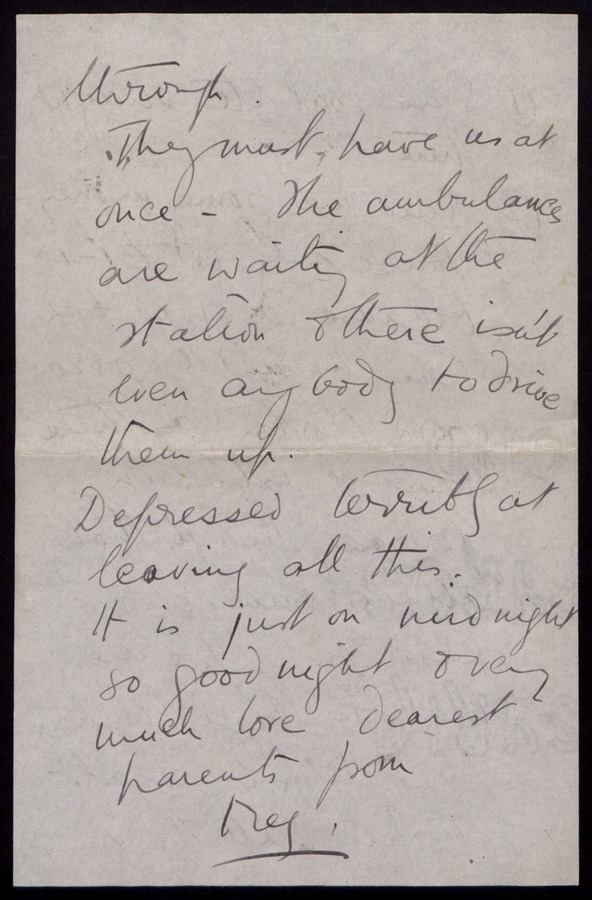 through.
They must have us at
once - The ambulances
are waiting at the
station & there isn't
even anybody to drive
them up.
Depressed terribly at
leaving all this.
It is just on midnight
so good night & very
much love dearest
parents from